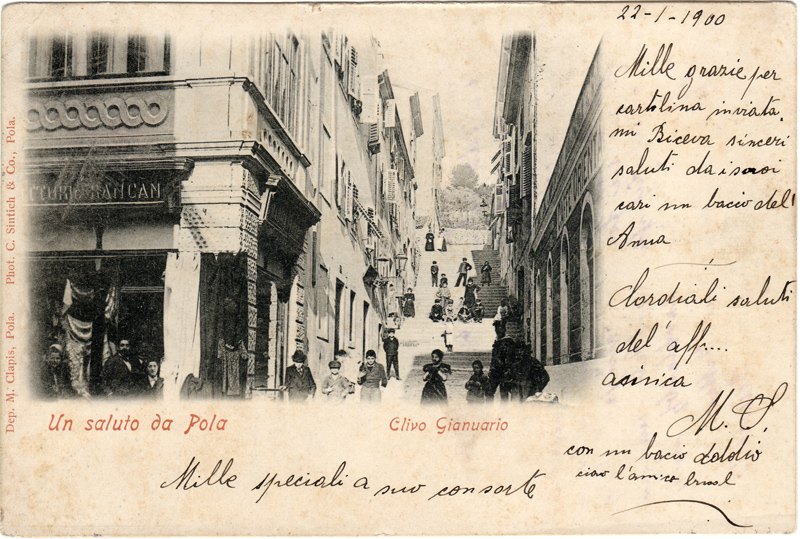 22-1-1900
Mille grazie per
cartolina inviata.
mi Biceva sinceri
saluti dai suoi
cari un bacio del'
Anna
Cordiali saluti
del' aff....
amica
M. S.
con un bacio
ciao l'amico
Mille speciali a suo consorte
Un saluto da Pola
Clivo Gianuario
Dep. M. Clapis, Pola. Phot. C. Sintich & Co., Pola.